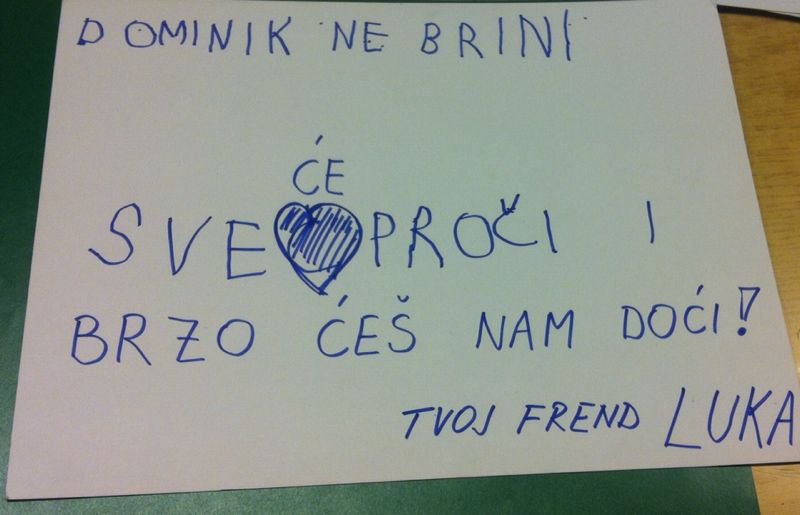 DOMINIK NE BRINI
ĆE
SVE PROČI I
BRZO ĆEŠ NAM DOĆI!
TVOJ FREND LUKA